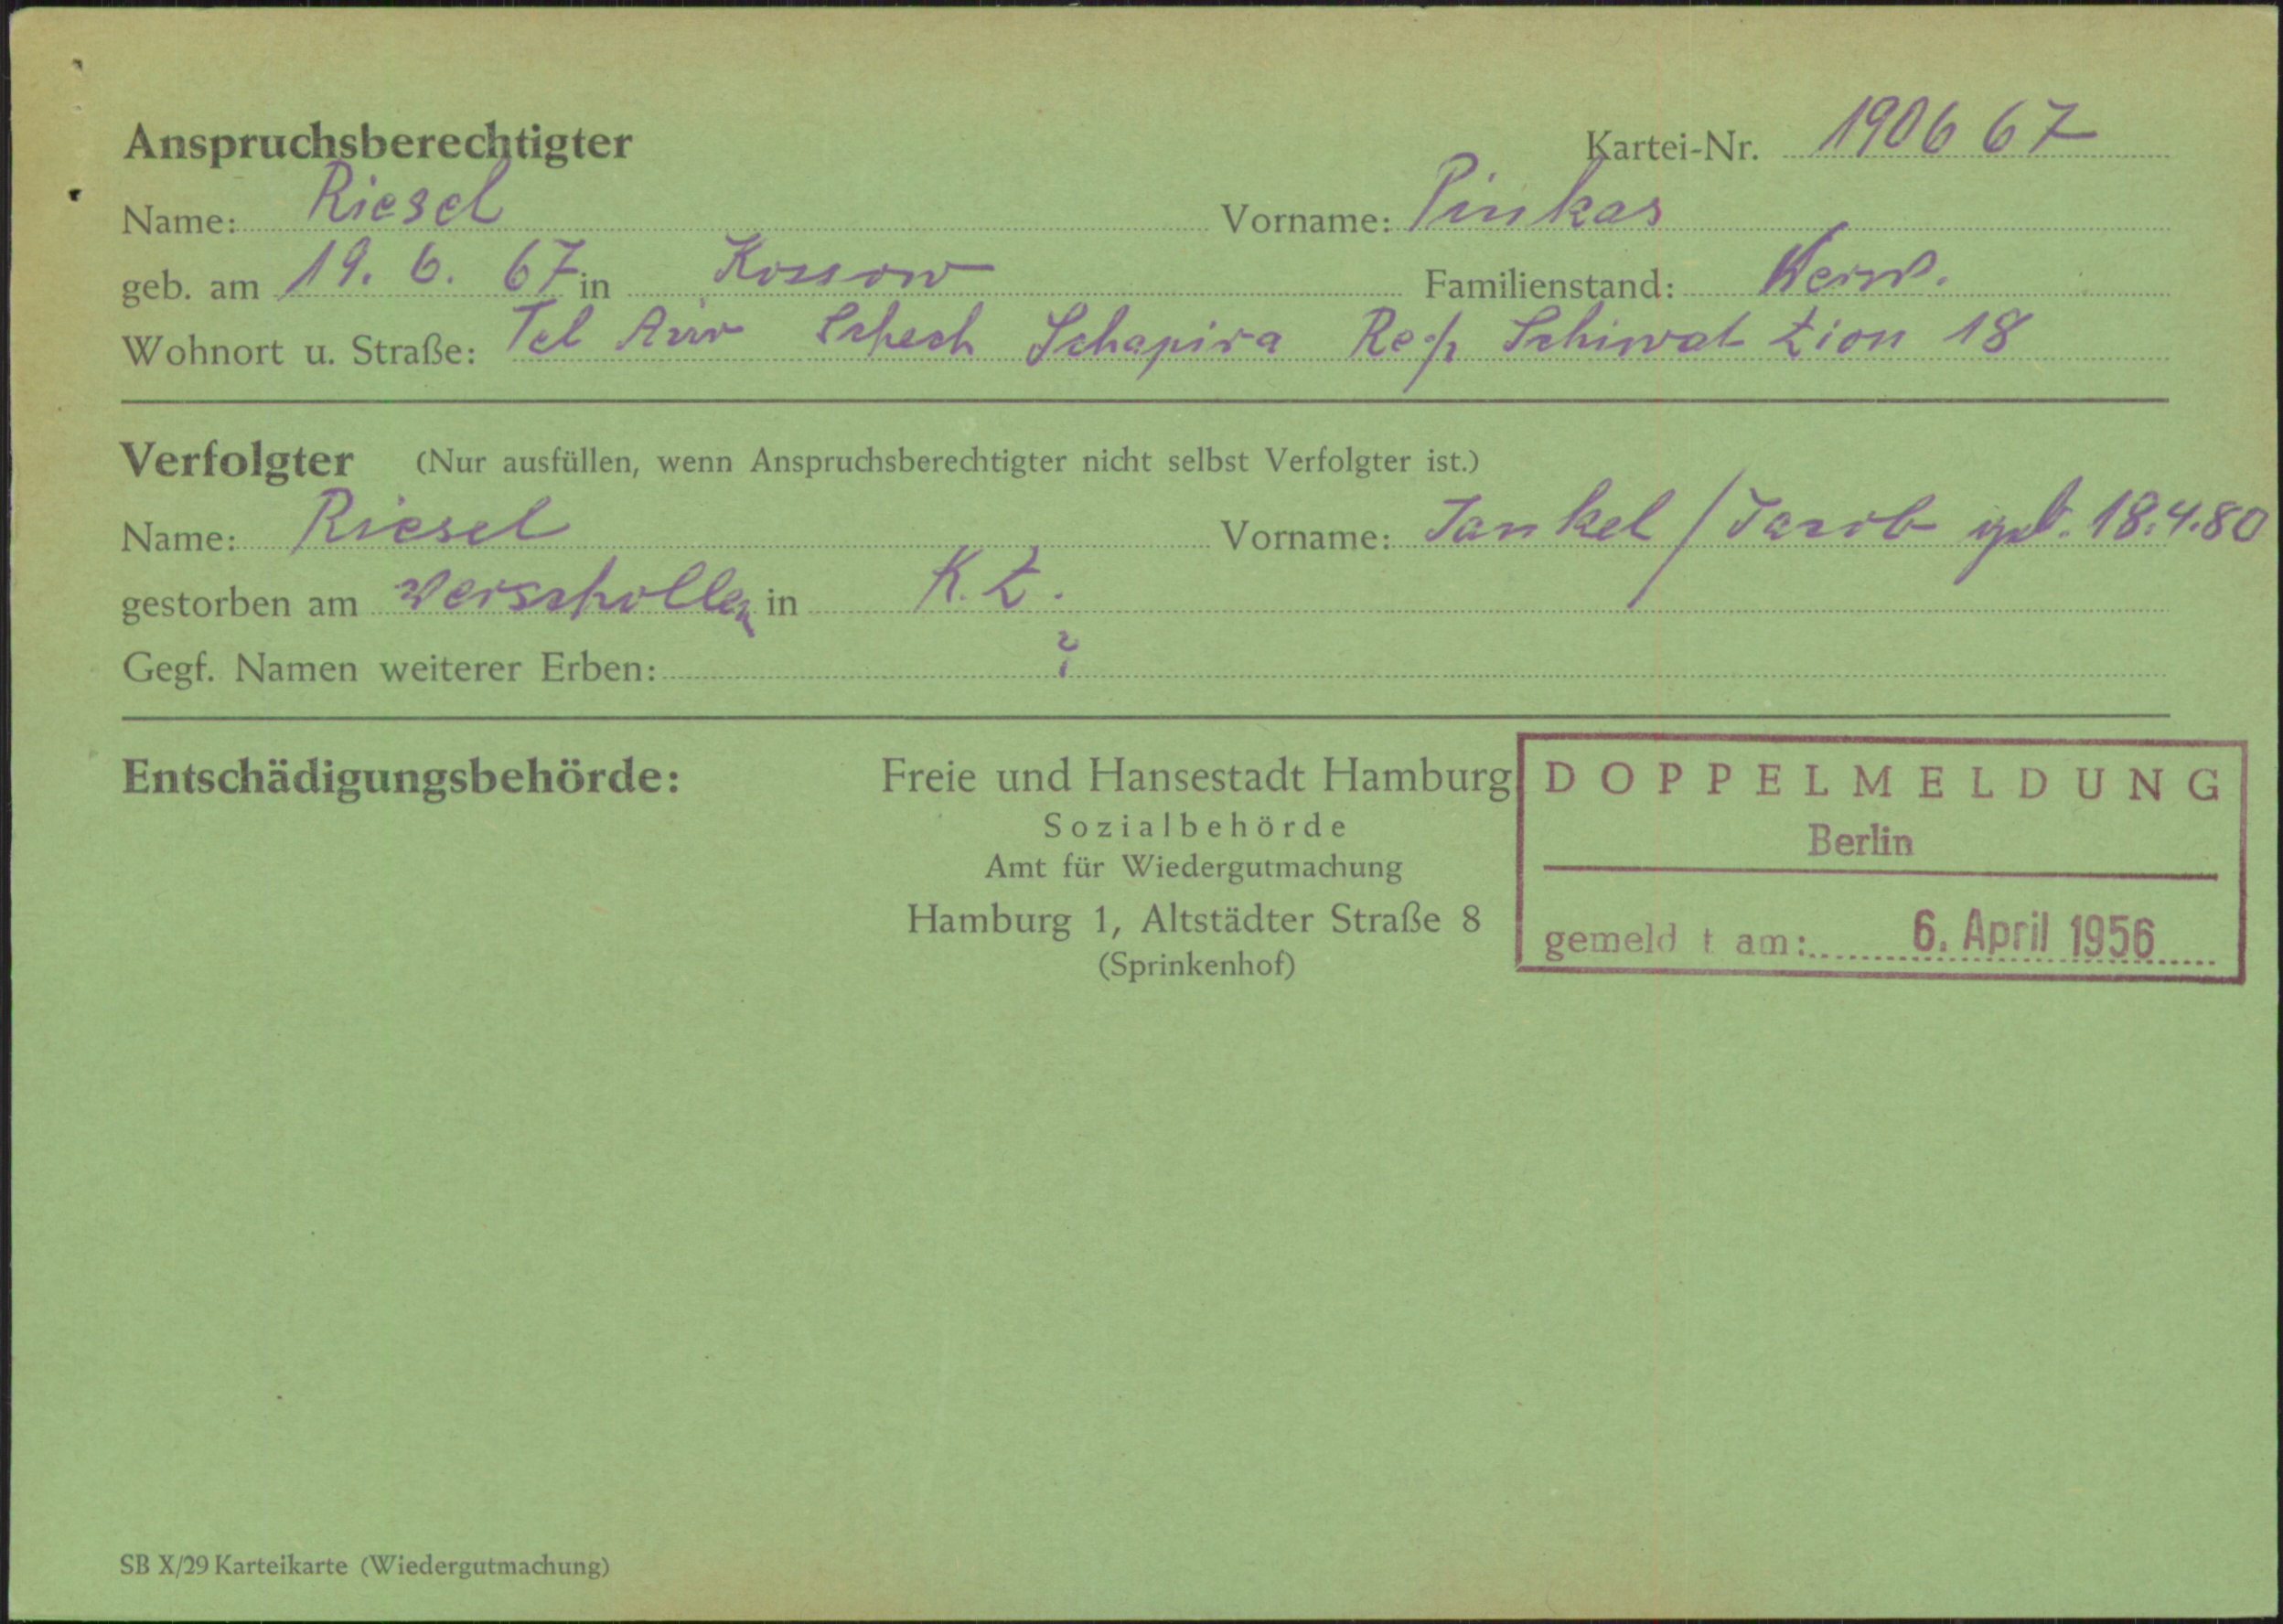 Anspruchsberechtigter Kartei-Nr. 190667
Name: Riesel Vorname: Pinkas
geb. am 19. 6. 67 in Kossow Familienstand: Verw.
Wohnort u. Straße: Tel Aviv Schech Schapira Schiwat Zion 18
Verfolgter (Nur ausfüllen, wenn Anspruchsberechtigter nicht selbst Verfolgter ist.)
Name: Riesel Vorname: Jankel / Jacob geb. 18.4.80
gestorben am verschollen in K.Z.
Gegf. Namen weiterer Erben: ?
Entschädigungsbehörde: Freie und Hansestadt Hamburg
Sozialbehörde
Amt für Wiedergutmachung
Hamburg 1, Altstädter Straße 8
(Sprinkenhof)
DOPPELMELDUNG
Berlin
gemeld t am: 6. April 1956
SB X/29 Karteikarte (Wiedergutmachung)